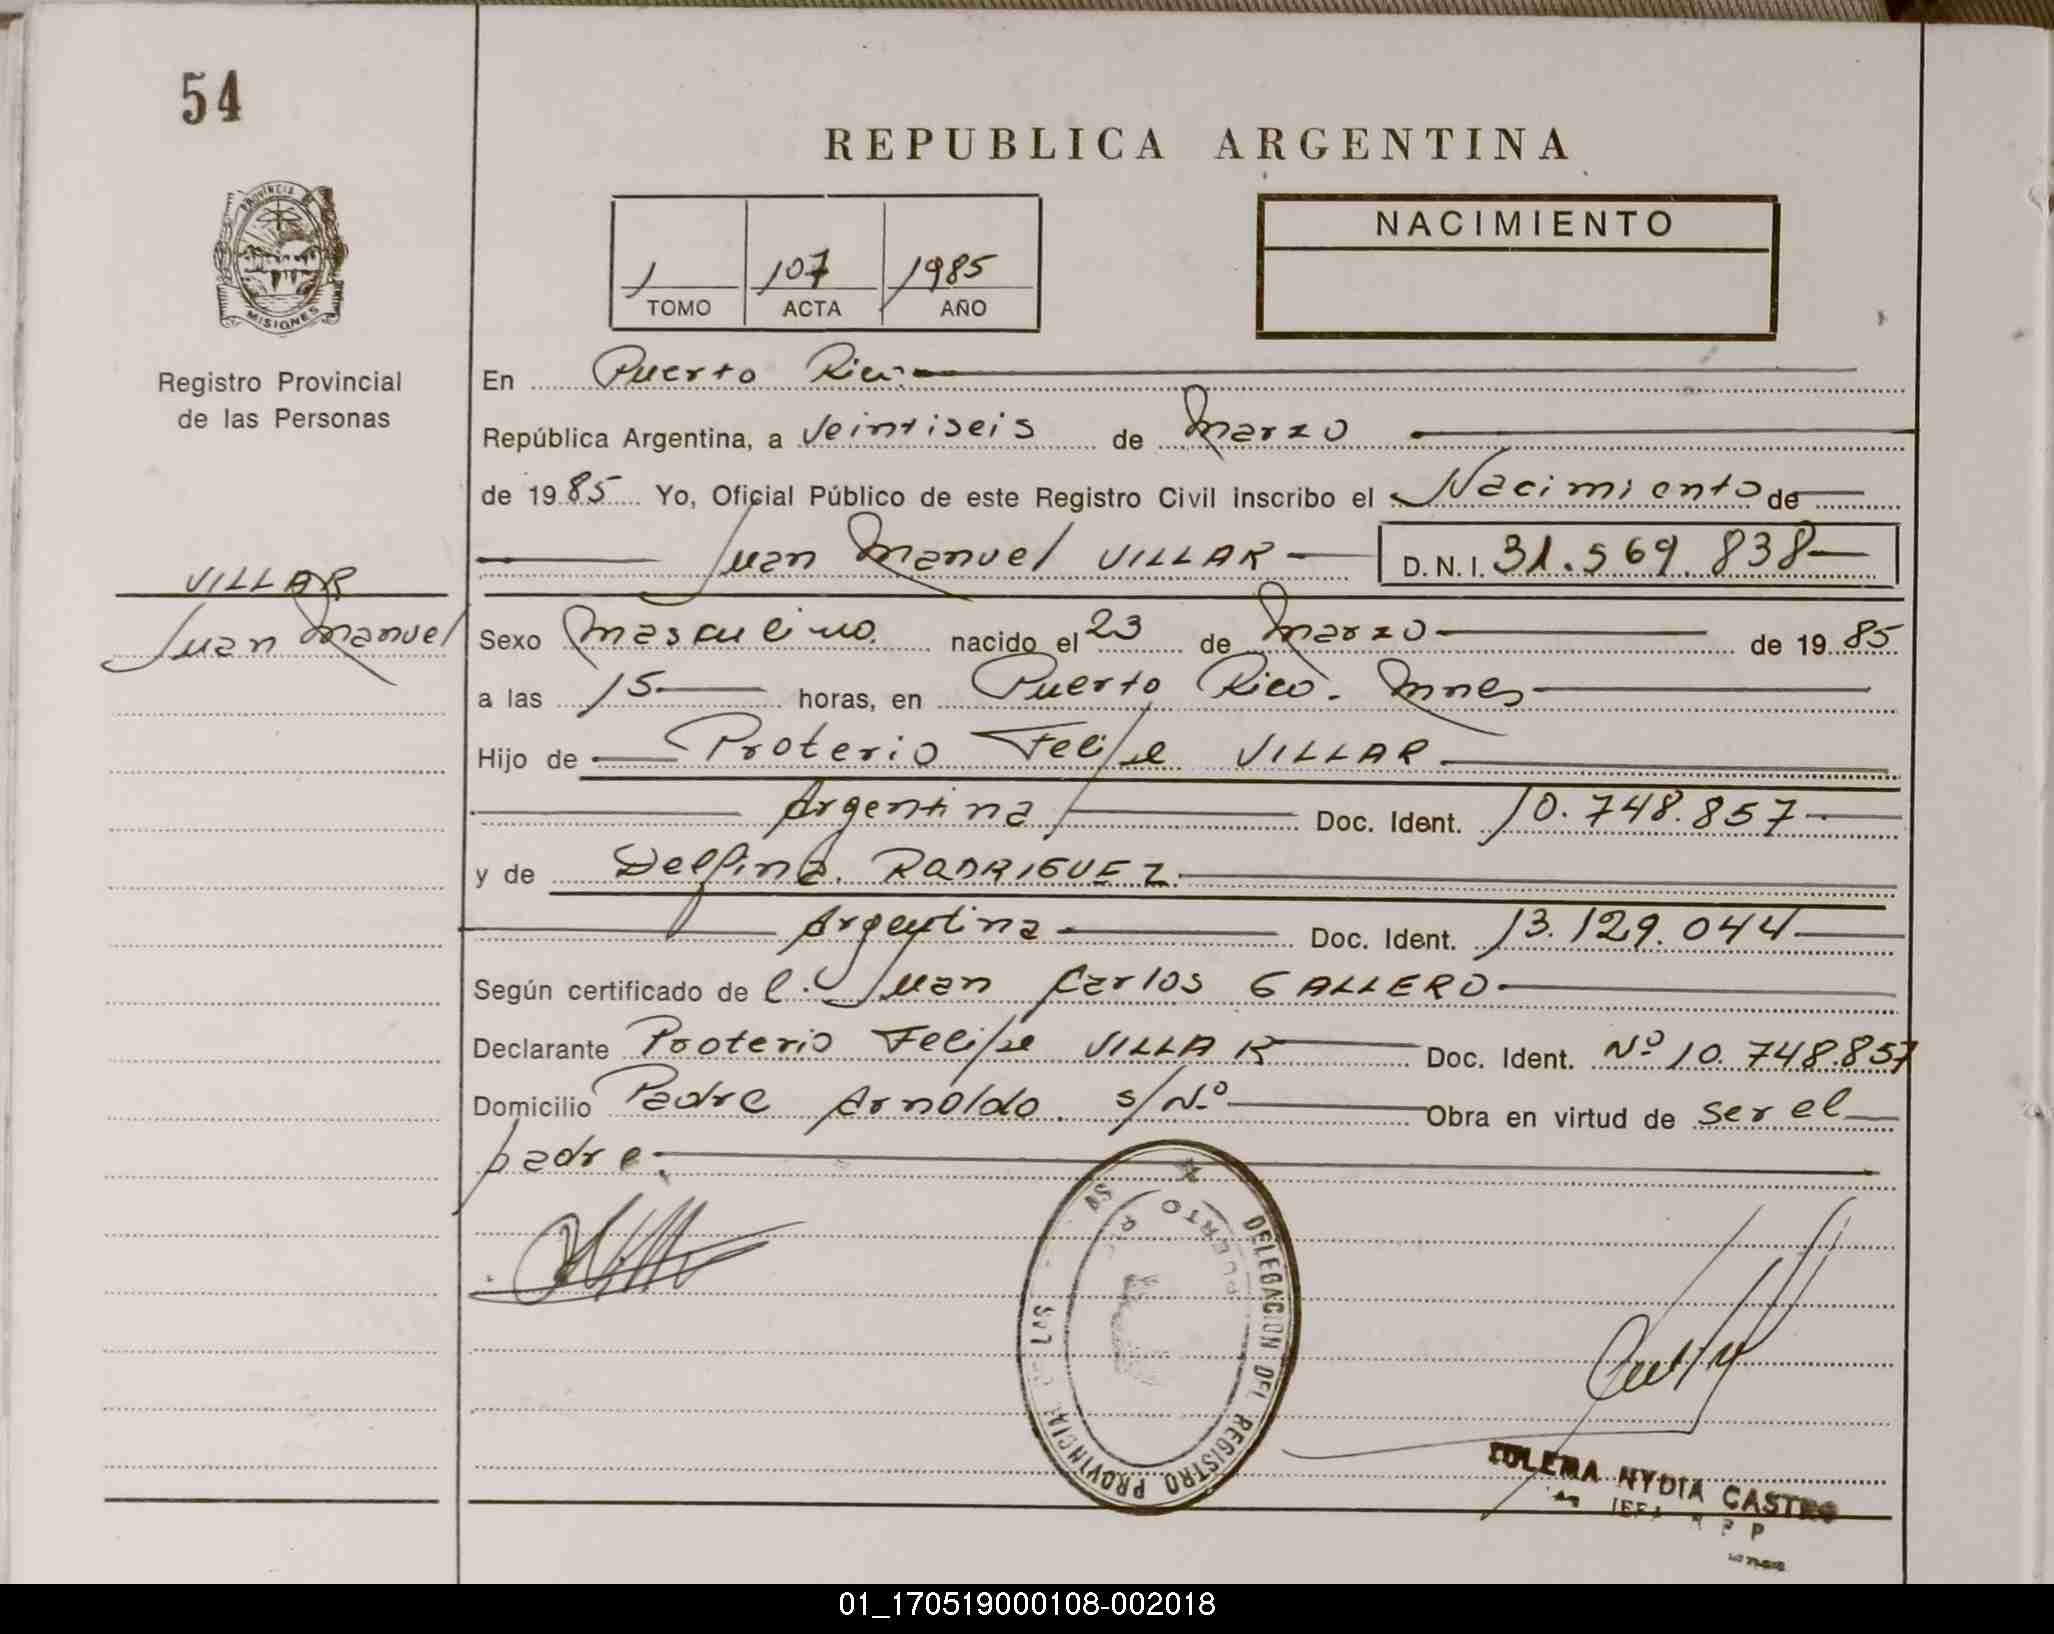 54
REPUBLICA ARGENTINA
PROVINCIA DE
MISIONES
1 107 1985
TOMO ACTA AÑO
NACIMIENTO
Registro Provincial
de las Personas
En Puerto Rico.
República Argentina, a Veintiseis de Marzo
de 1985 Yo, Oficial Público de este Registro Civil inscribo el Nacimiento de
Juan Manuel VILLAR D.N.I. 31.569.838
VILLAR
Juan Manuel
Sexo Masculino. nacido el 23 de Marzo de 1985
a las 15 horas, en Puerto Rico. Mnes
Hijo de Proterio Felipe VILLAR
Argentina Doc. Ident. 10.748.857
y de Delfina. RODRIGUEZ.
Argentina Doc. Ident. 13.129.044
Según certificado de l. Juan Carlos GALLERO
Declarante Proterio Felipe VILLAR Doc. Ident. Nº 10.748.857
Domicilio Padre Arnoldo. s/Nº Obra en virtud de ser el
padre.
DELEGACION DEL REGISTRO PROVINCIAL LAS
PUERTO
ZULEMA NYDIA CASTRO
01_170519000108-002018